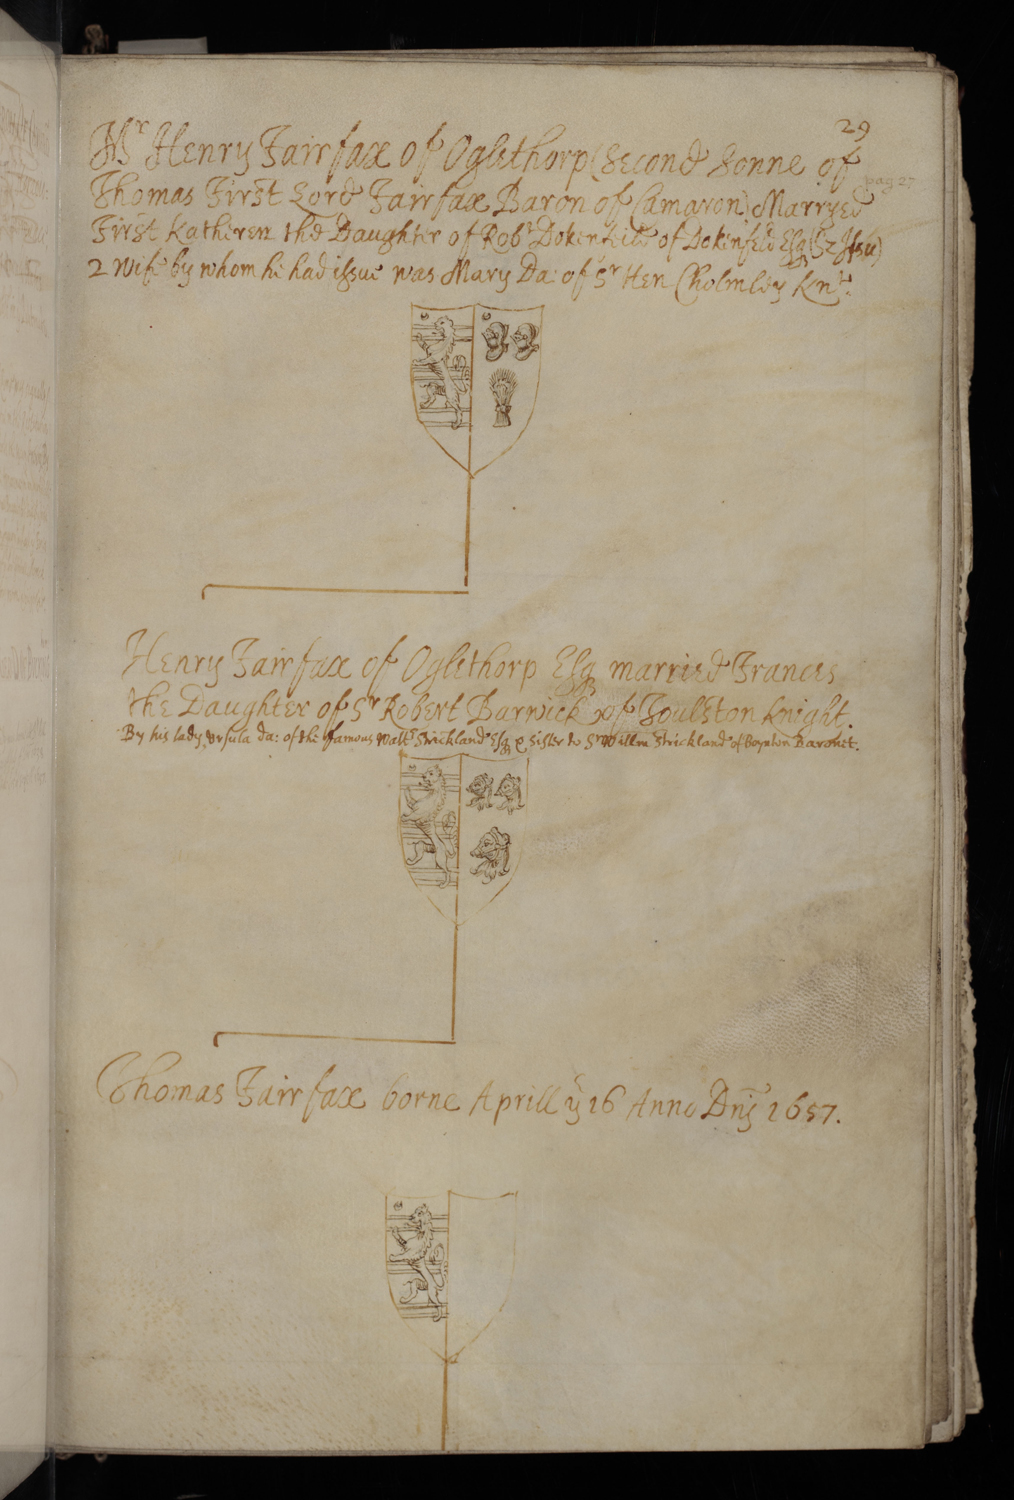 29
Mr Henry Fairfax of Oglethorp (Second Sonne of
pag 27
Thomas First Lord Fairfax Baron of Camaron) Marryed
First Katheren the Daughter of Robt Dokenfeild of Dokenfeld Esq
2 Wife by whom he had issue was Mary Da: of Sr Hen Cholmley Knt.
Henry Fairfax of Oglethorp Esq married Frances
the Daughter of Sr Robert Barwick of Toulston Knight.
By his lady Ursula da: of the famous Walt Strickland Esq & Sister to Sr Willm Strickland of Boynton Baronet.
Thomas Fairfax borne Aprill ye 16 Anno Dni 1657.